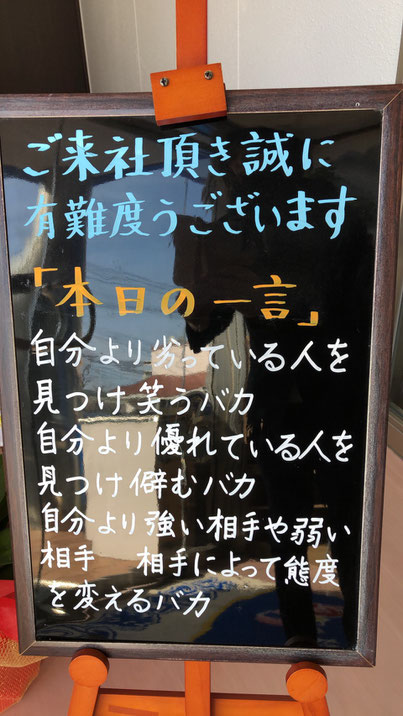 ご来社頂き誠に
有難度うございます
「本日の一言」
自分より劣っている人を
見つけ笑うバカ
自分より優れている人を
見つけ僻むバカ
自分より強い相手や弱い
相手　相手によって態度
を変えるバカ